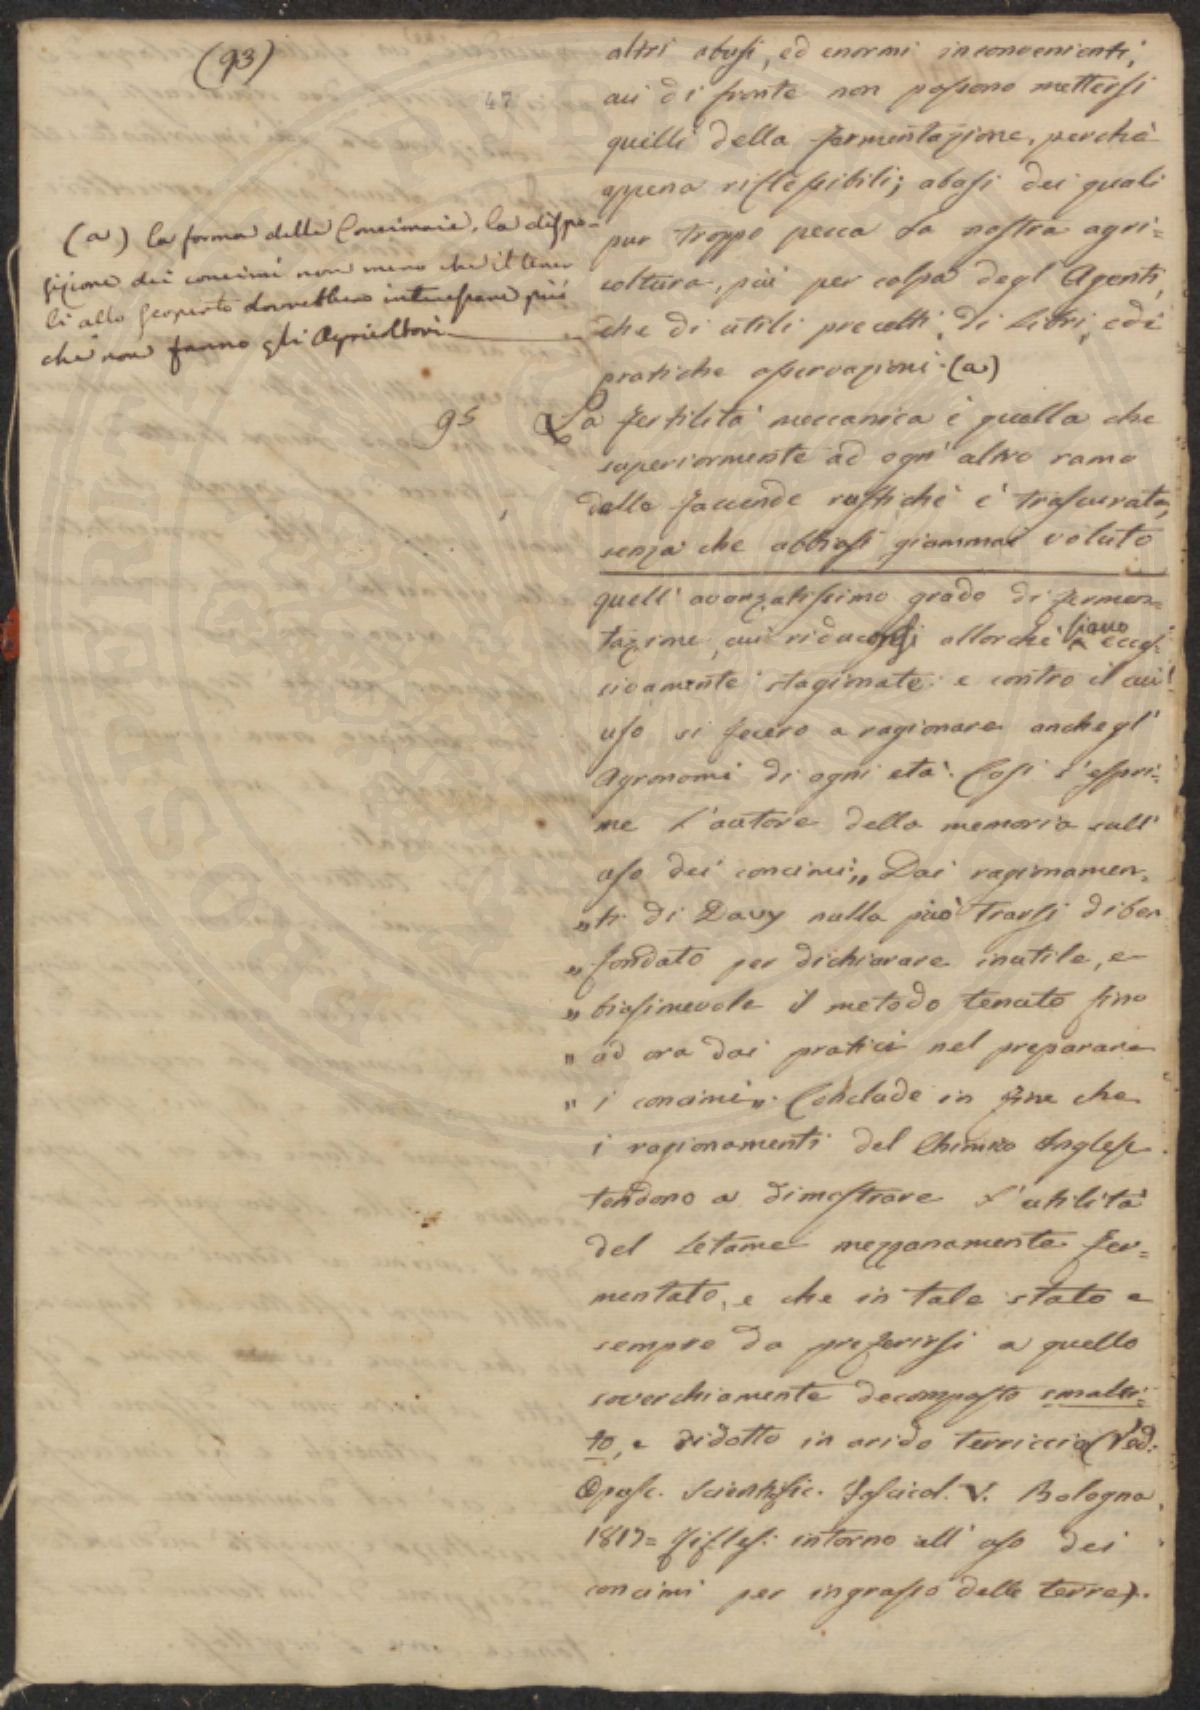 (93)
47
altri abusi, ed enormi inconvenienti,
cui di fronte non possono mettersi
quelli della fermentazione, perchè
appena riflessibili; abusi dei quali
pur troppo pecca la nostra agri=
coltura, più per colpa degl' Agenti,
che di utili precetti, di Libri, e di
pratiche osservazioni. (a)
(a) la forma delle Concimaie, la dispo-
sizione dei concimi non meno che il tener
li allo scoperto dovrebbero interessare più
che non fanno gli Agricoltori
95 La fertilità meccanica è quella che
superiormente ad ogn' altro ramo
delle faccende rustiche è trascurata,
senza che abbiasi giammai voluto
quell' avanzatissimo grado di fermen=
tazione, cui riduconsi allorchè siano ecces=
sivamente stagionate: e contro il cui
uso si fecero a ragionare anche gl'
Agronomi di ogni età. Così s'espri=
me l'autore della memoria sull'
uso dei concimi „ Dai ragionamen-
„ ti di Davy nulla può trarsi di ben
„ fondato per dichiarare inutile, e
„ biasimevole il metodo tenuto fino
„ ad ora dai pratici nel preparare
„ i concimi „. Conclude in fine che
i ragionamenti del Chimico Inglese
tendono a dimostrare l'utilità
del Letame mezzanamente fer=
mentato, e che in tale stato e
sempre da preferirsi a quello
soverchiamente decomposto smalti=
to, e ridotto in arido terriccio (Ved:
Opusc. Scientific. Fascicol. V. Bologna
1817= Rifless: intorno all' uso dei
concimi per ingrasso delle terre).